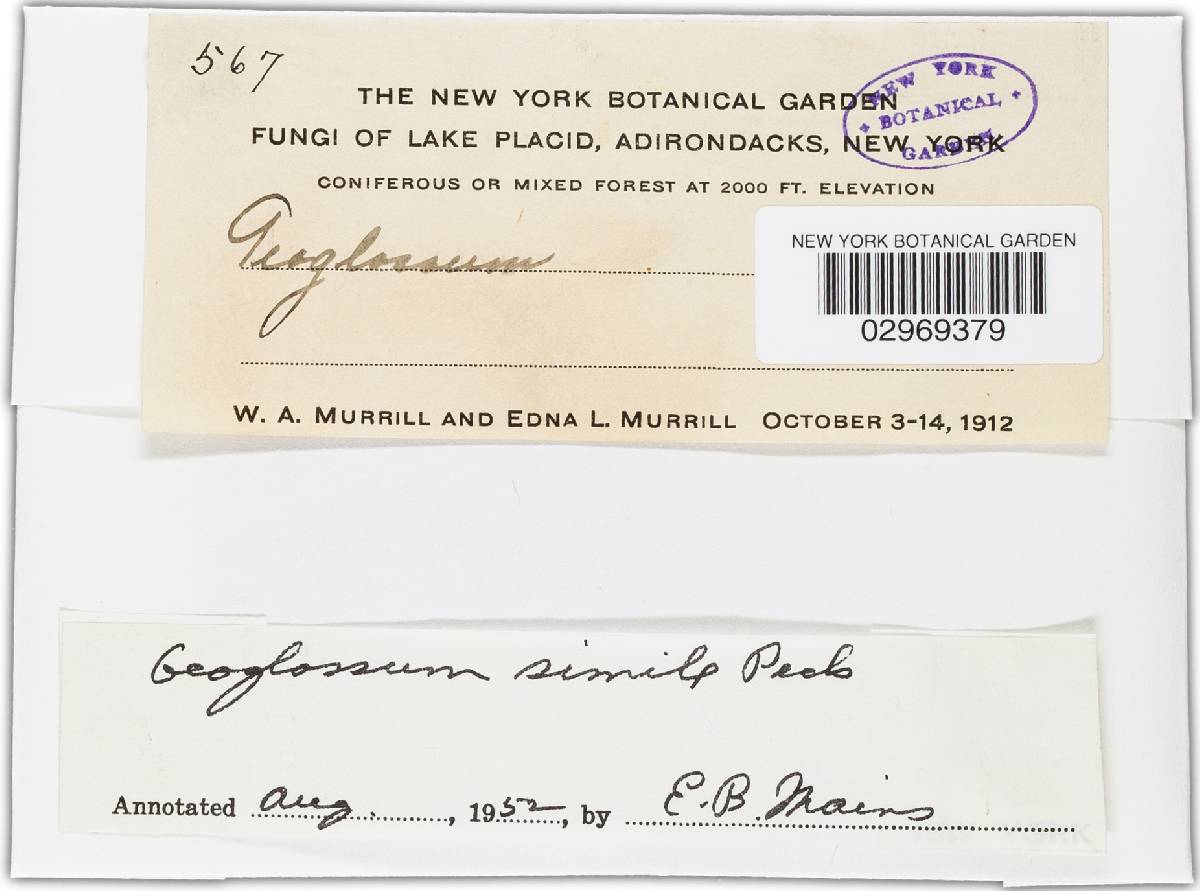 567
THE NEW YORK BOTANICAL GARDEN
FUNGI OF LAKE PLACID, ADIRONDACKS, NEW YORK
NEW YORK
BOTANICAL
GARDEN
CONIFEROUS OR MIXED FOREST AT 2000 FT. ELEVATION
Geoglossum
NEW YORK BOTANICAL GARDEN
02969379
W. A. MURRILL AND EDNA L. MURRILL OCTOBER 3-14, 1912
Geoglossum simile Peck
Annotated Aug., 1952, by E. B. Mains